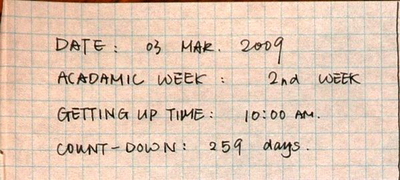 DATE: 03 MAR. 2009
ACADAMIC WEEK: 2nd WEEK
GETTING UP TIME: 10:00 AM.
COUNT-DOWN: 259 days.